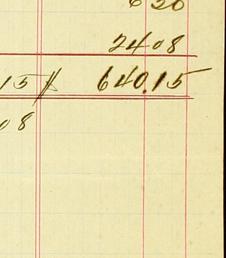 6 20
24 08
15 640.15
08